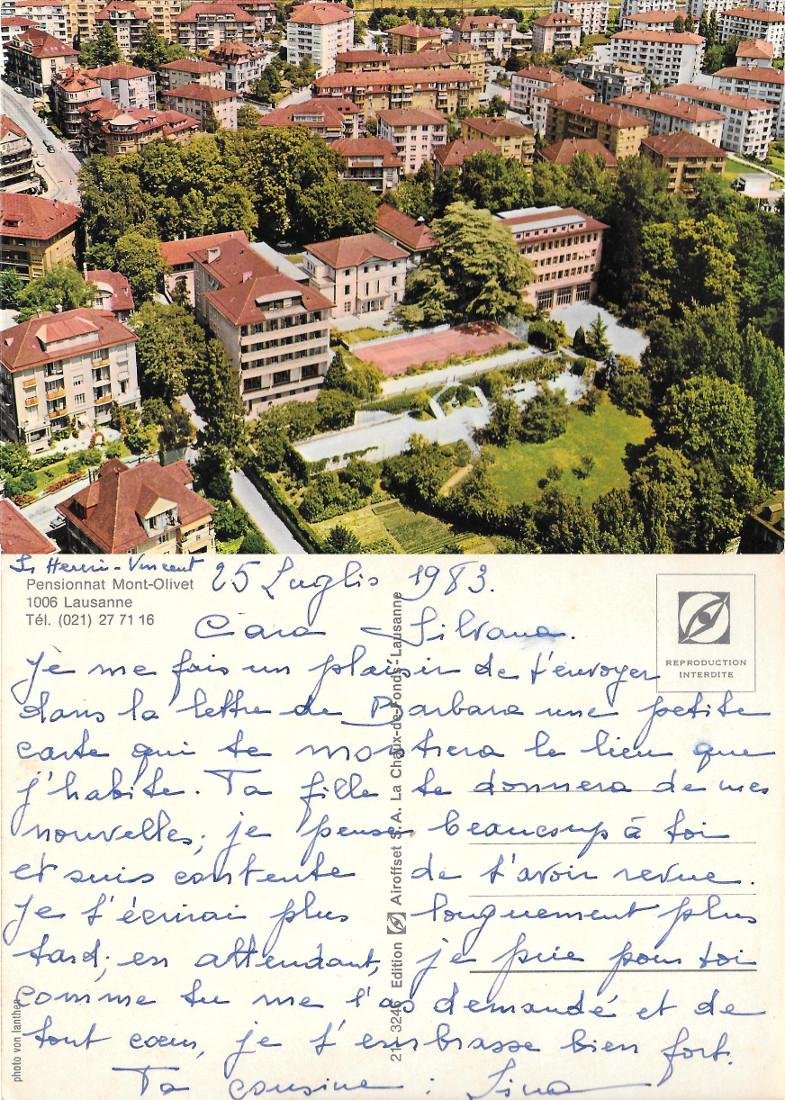 Sr Henri-Vincent
Pensionnat Mont-Olivet
1006 Lausanne
Tél. (021) 27 71 16
25 Luglio 1983.
REPRODUCTION
INTERDITE
Cara Silvana.
Je me fais un plaisir de t'envoyer
dans la lettre de Barbara une petite
carte qui te montrera le lieu que
j'habite. Ta fille te donnera de mes
nouvelles; je pense beaucoup à toi
et suis contente de t'avoir revue.
Je t'écrirai plus longuement plus
tard; en attendant, je prie pour toi
comme tu me l'as demandé et de
tout cœur, je t'embrasse bien fort.
Ta cousine : Lina
21 3246 Edition Airoffset S.A. La Chaux-de-Fonds - Lausanne
photo von Ianthen